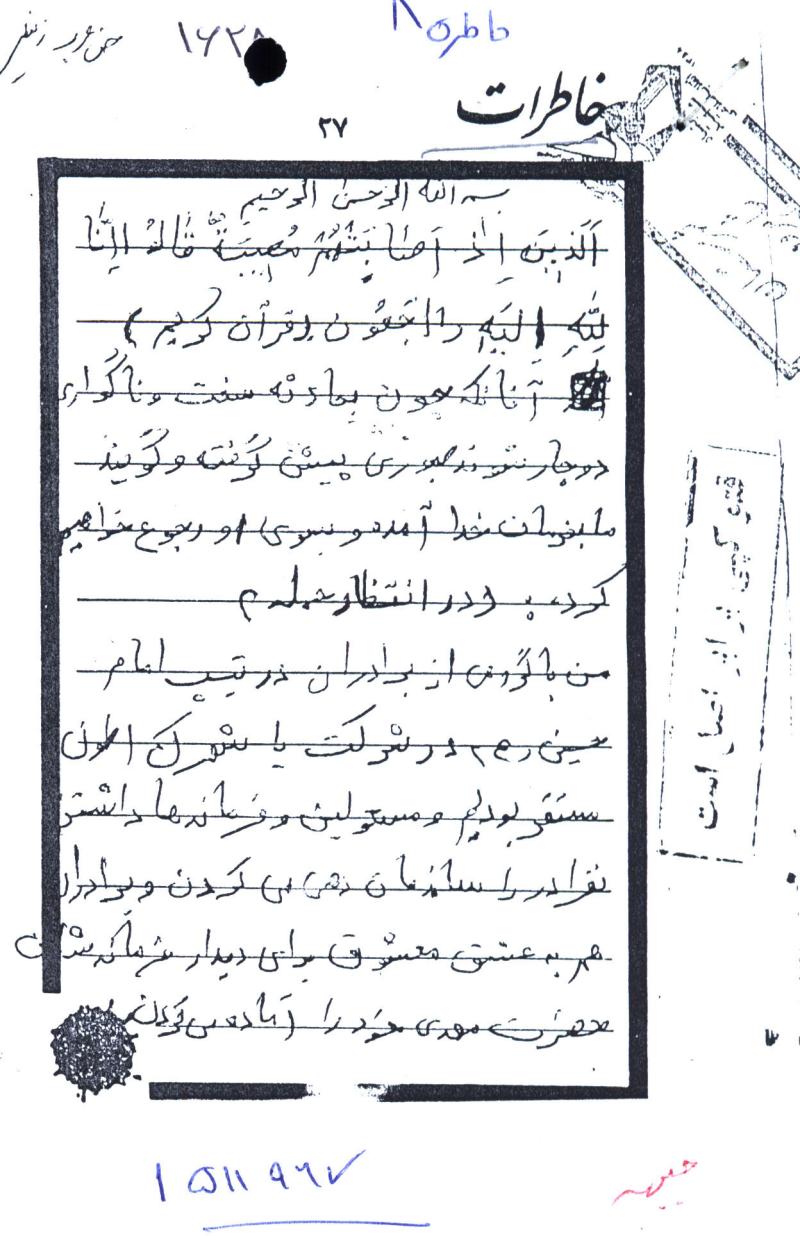 خاطره ۸
۱۶۲۸
خاطرات
۲۷
بسم الله الرحمن الرحیم
اَلَّذینَ اِذ اَصابَتْهُمْ مُصیبَةٌ قالهُ اِنّا
لِلّهِ اِلَیهِ رااجَعُون (قرآن کریم)
آنانکه چون بحادثه سخت و ناگواری
دوچار شوند صبوری پیش گرفته و گویند
ما بفرمان خدا آمده و بسوی او رجوع خواهیم
کرد، (در انتظار حمله)
من با گروهی از برادران در تیپ امام
حسین (ع) در شرکت یا شهرک
مستقر بودیم و مسعولین و فرماندها داشتن
نفرا در را سازمان دهی می کردن و برادران
هم به عشق معشوق برای دیدار فرمانده شان
حضرت مهدی خود را آماده می کردن
فتو کپی برابر اصل است
جبهه